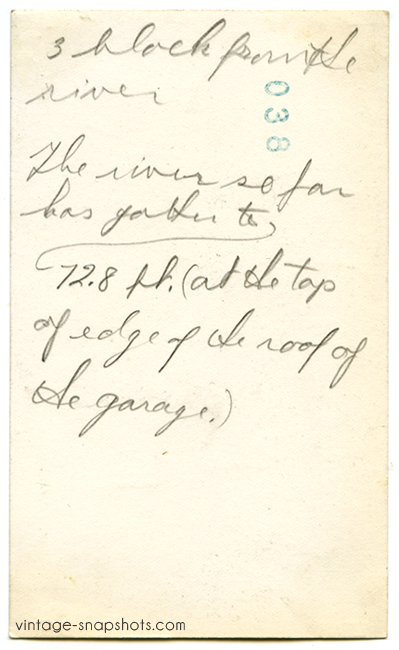 3 block from the
river
038
The river so far
has gotten to
72.8 ft. (at the top
of edge of the roof of
the garage.)
vintage-snapshots.com